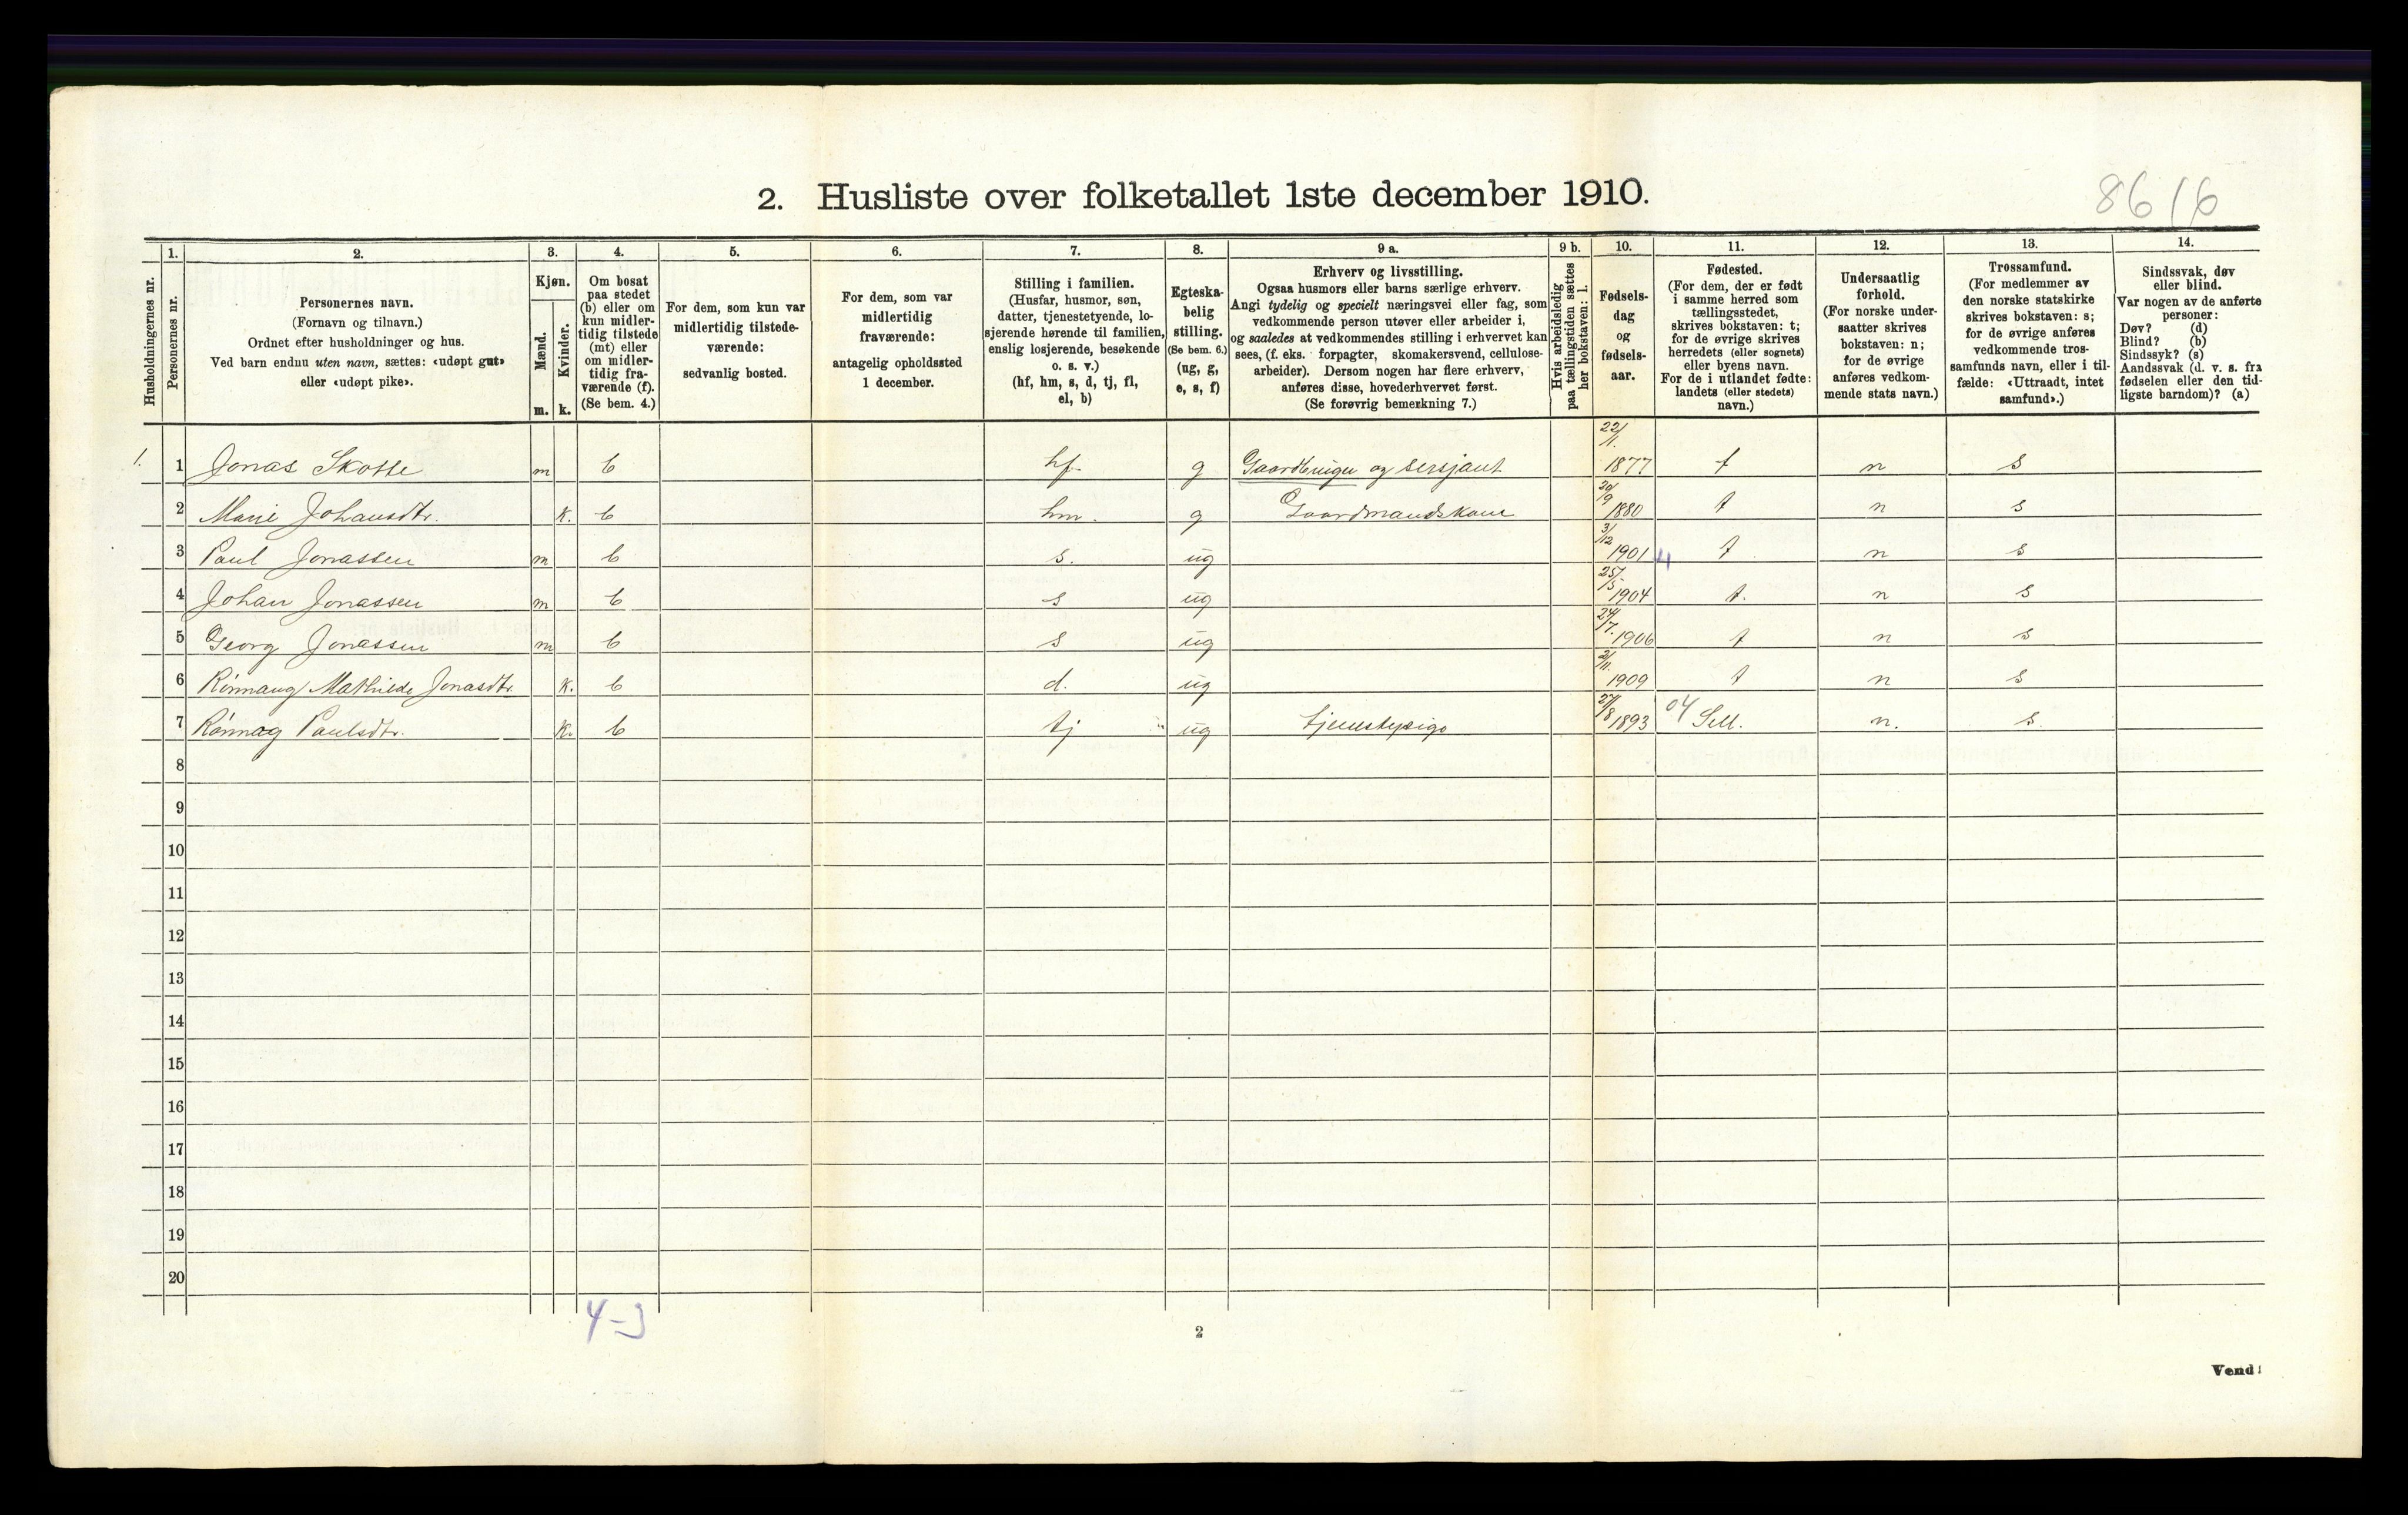 8616
2. Husliste over folketallet 1ste december 1910.
Husholdningernes nr.
1.
Personernes nr.
2.
Personernes navn.
(Fornavn og tilnavn.)
Ordnet efter husholdninger og hus.
Ved barn endnu uten navn, sættes: «udøpt gut»
eller «udøpt pike».
3.
Kjøn.
Mænd.
m.
Kvinder.
k.
4.
Om bosat
paa stedet
(b) eller om
kun midler-
tidig tilstede
(mt) eller
om midler-
tidig fra-
værende (f).
(Se bem. 4.)
5.
For dem, som kun var
midlertidig tilstede-
værende:
sedvanlig bosted.
6.
For dem, som var
midlertidig
fraværende:
antagelig opholdssted
1 december.
7.
Stilling i familien.
(Husfar, husmor, søn,
datter, tjenestetyende, lo-
sjerende hørende til familien,
enslig losjerende, besøkende
o. s. v.)
(hf, hm, s, d, tj, fl,
el, b)
8.
Egteska-
belig
stilling.
(Se bem. 6.)
(ug, g,
e, s, f)
9 a.
Erhverv og livsstilling.
Ogsaa husmors eller barns særlige erhverv.
Angi tydelig og specielt næringsvei eller fag, som
vedkommende person utøver eller arbeider i,
og saaledes at vedkommendes stilling i erhvervet kan
sees, (f. eks. forpagter, skomakersvend, cellulose-
arbeider). Dersom nogen har flere erhverv,
anføres disse, hovederhvervet først.
(Se forøvrig bemerkning 7.)
9 b.
Hvis arbeidsledig
paa tællingstiden sættes
her bokstaven: l.
10.
Fødsels-
dag
og
fødsels-
aar.
11.
Fødested.
(For dem, der er født
i samme herred som
tællingsstedet,
skrives bokstaven: t;
for de øvrige skrives
herredets (eller sognets)
eller byens navn.
For de i utlandet fødte:
landets (eller stedets)
navn.)
12.
Undersaatlig
forhold.
(For norske under-
saatter skrives
bokstaven: n;
for de øvrige
anføres vedkom-
mende stats navn.)
13.
Trossamfund.
(For medlemmer av
den norske statskirke
skrives bokstaven: s;
for de øvrige anføres
vedkommende tros-
samfunds navn, eller i til-
fælde: «Uttraadt, intet
samfund».)
14.
Sindssvak, døv
eller blind.
Var nogen av de anførte
personer:
Døv? (d)
Blind? (b)
Sindssyk? (s)
Aandssvak (d. v. s. fra
fødselen eller den tid-
ligste barndom)? (a)
1. 1 Jonas Skotte m b hf. g Gaardbruger og sersjant 22/1. 1877 t n s
2 Marie Johansdtr. k. b hm. g Gaardmandskone 20/9 1880 t n s
3 Paul Jonassen m b s. ug 3/12 1901 4 t n s
4 Johan Jonassen m b s ug 25/5 1904 t. n s
5 Georg Jonassen m b s ug 24/7. 1906 t n s
6 Rønnaug Mathilde Jonasdtr. k. b d. ug 2/11. 1909 t n s
7 Rønnag Paulsdtr. k. b tj ug tjenestepige 27/8 1893 04 Sell. n. s.
8
9
10
11
12
13
14
15
16
17
18
19
20
4-3
2
Vend!